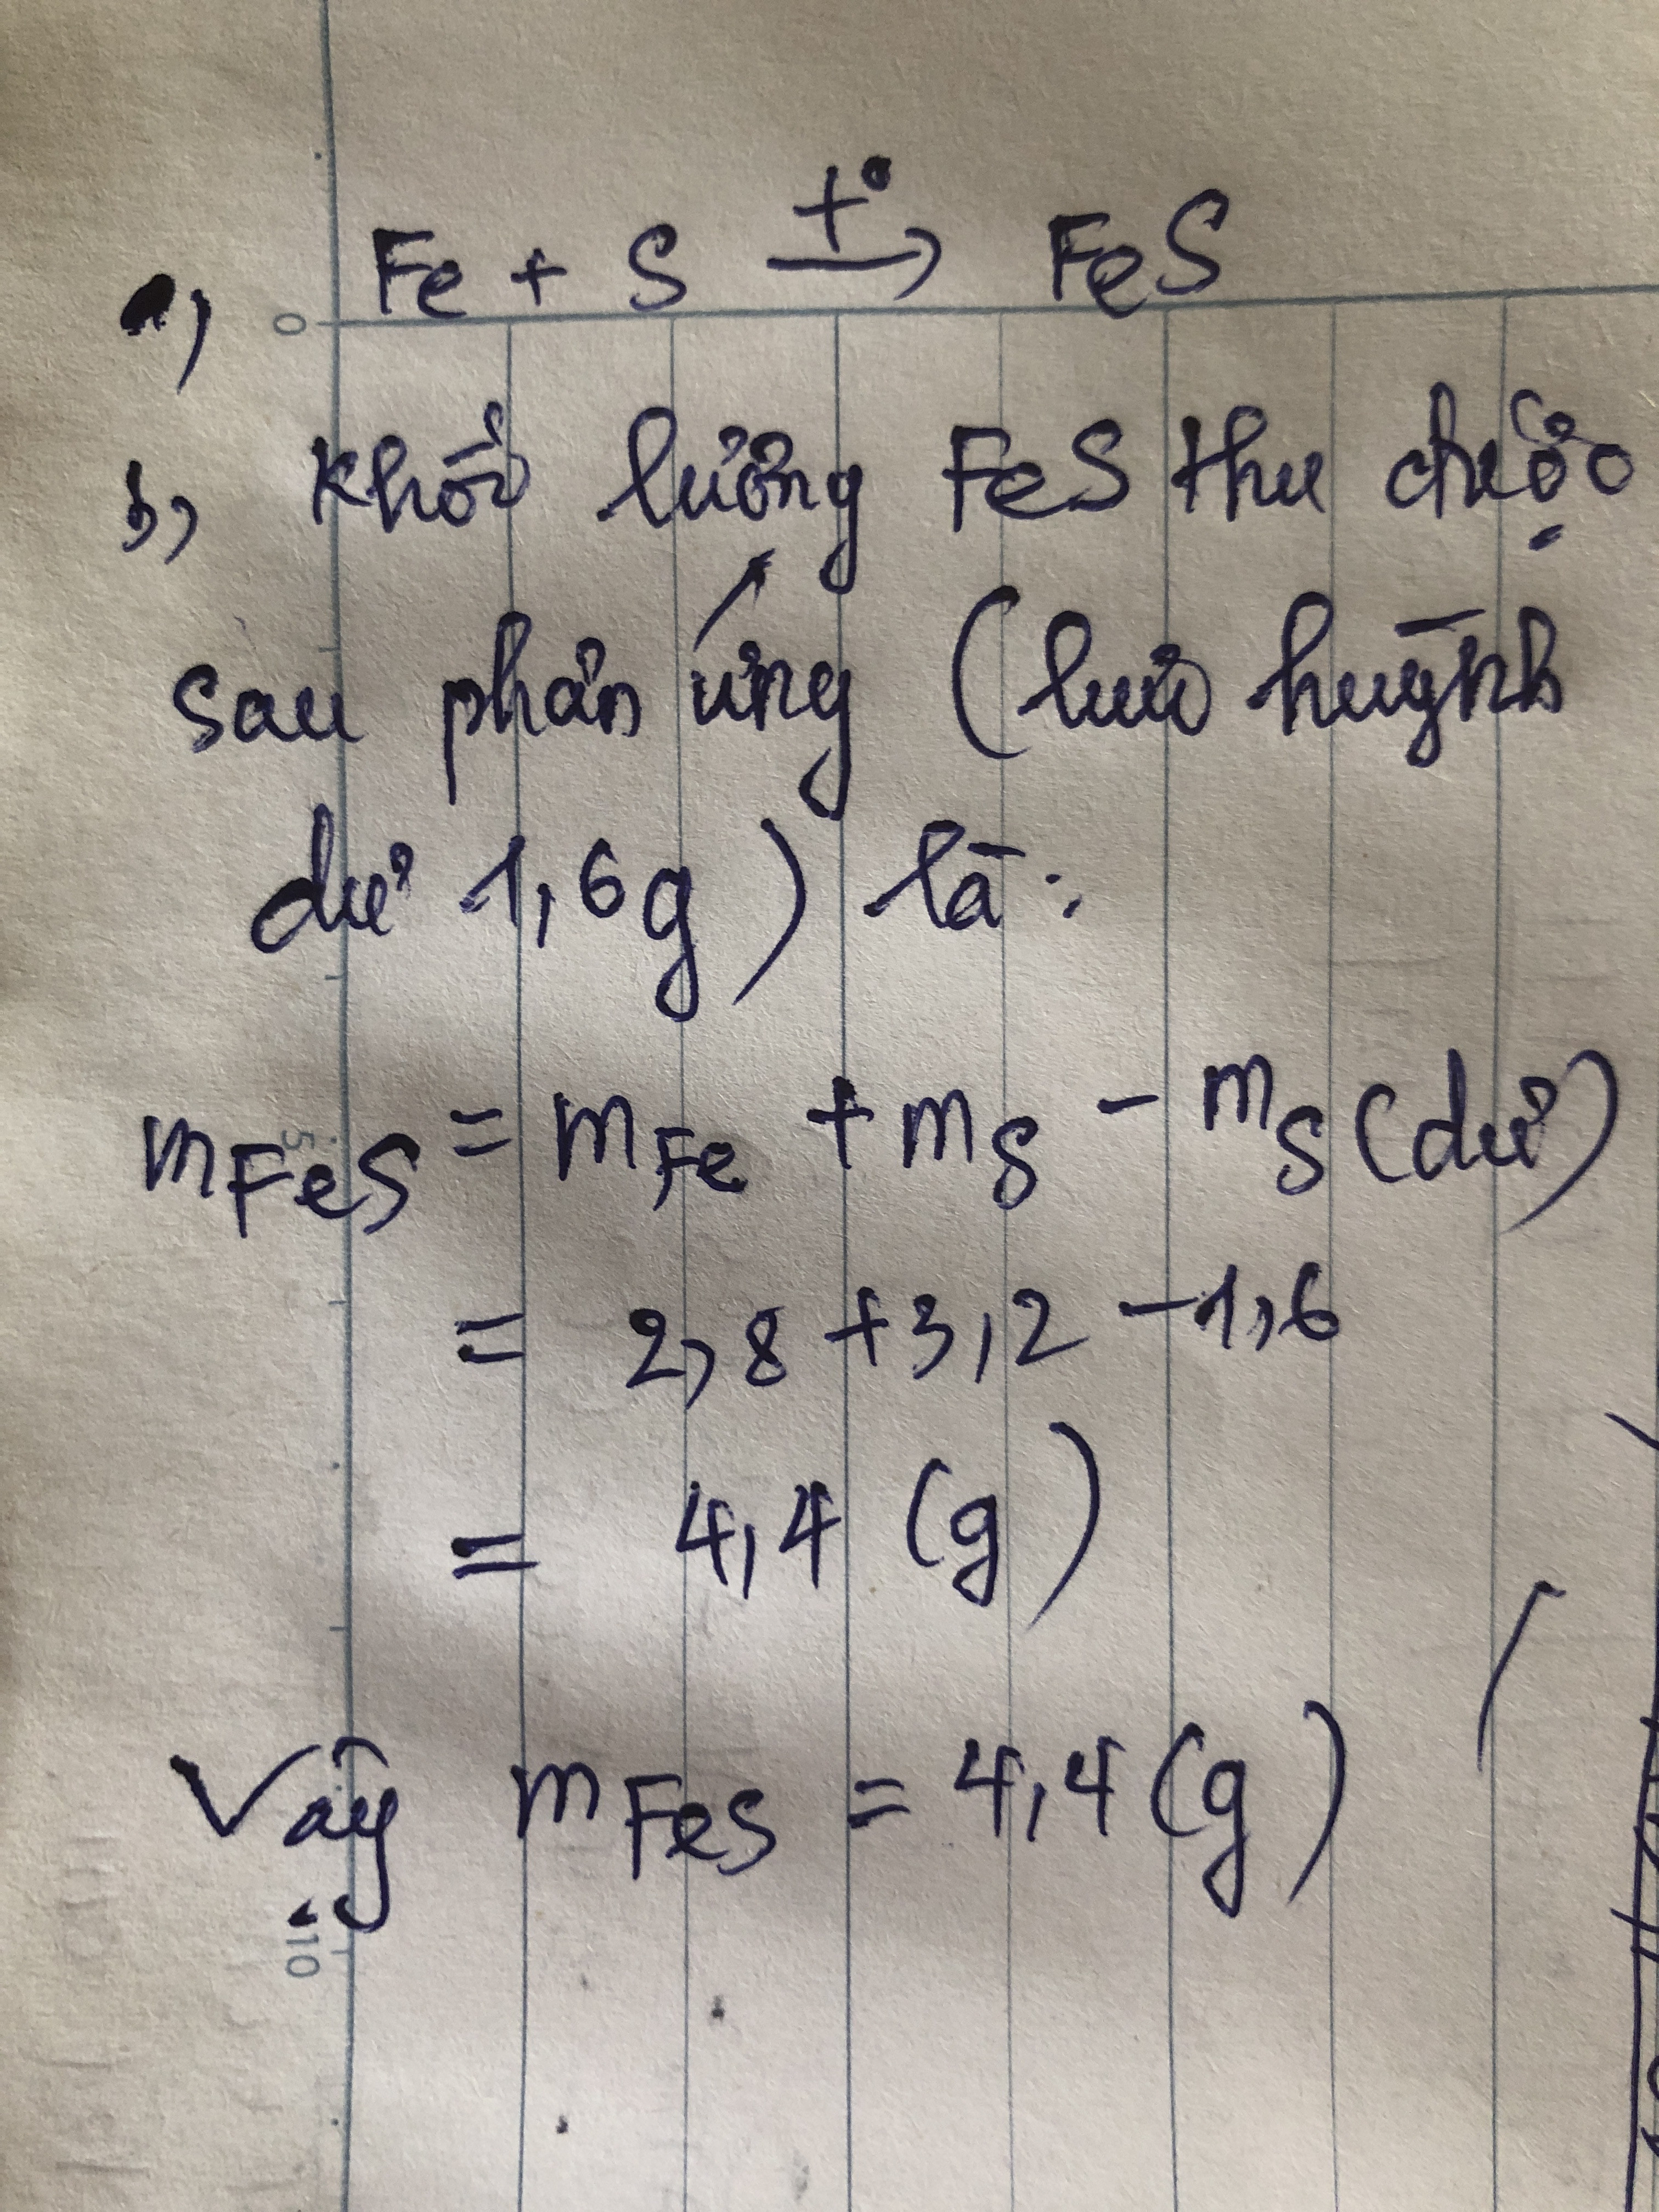 a, Fe + S t° → FeS
b, Khối lượng FeS thu được
sau phản ứng (lưu huỳnh
dư 1,6g) là:
m FeS = m Fe + m S - m S (dư)
= 2,8 + 3,2 - 1,6
= 4,4 (g)
Vậy m FeS = 4,4 (g)
0
5
10